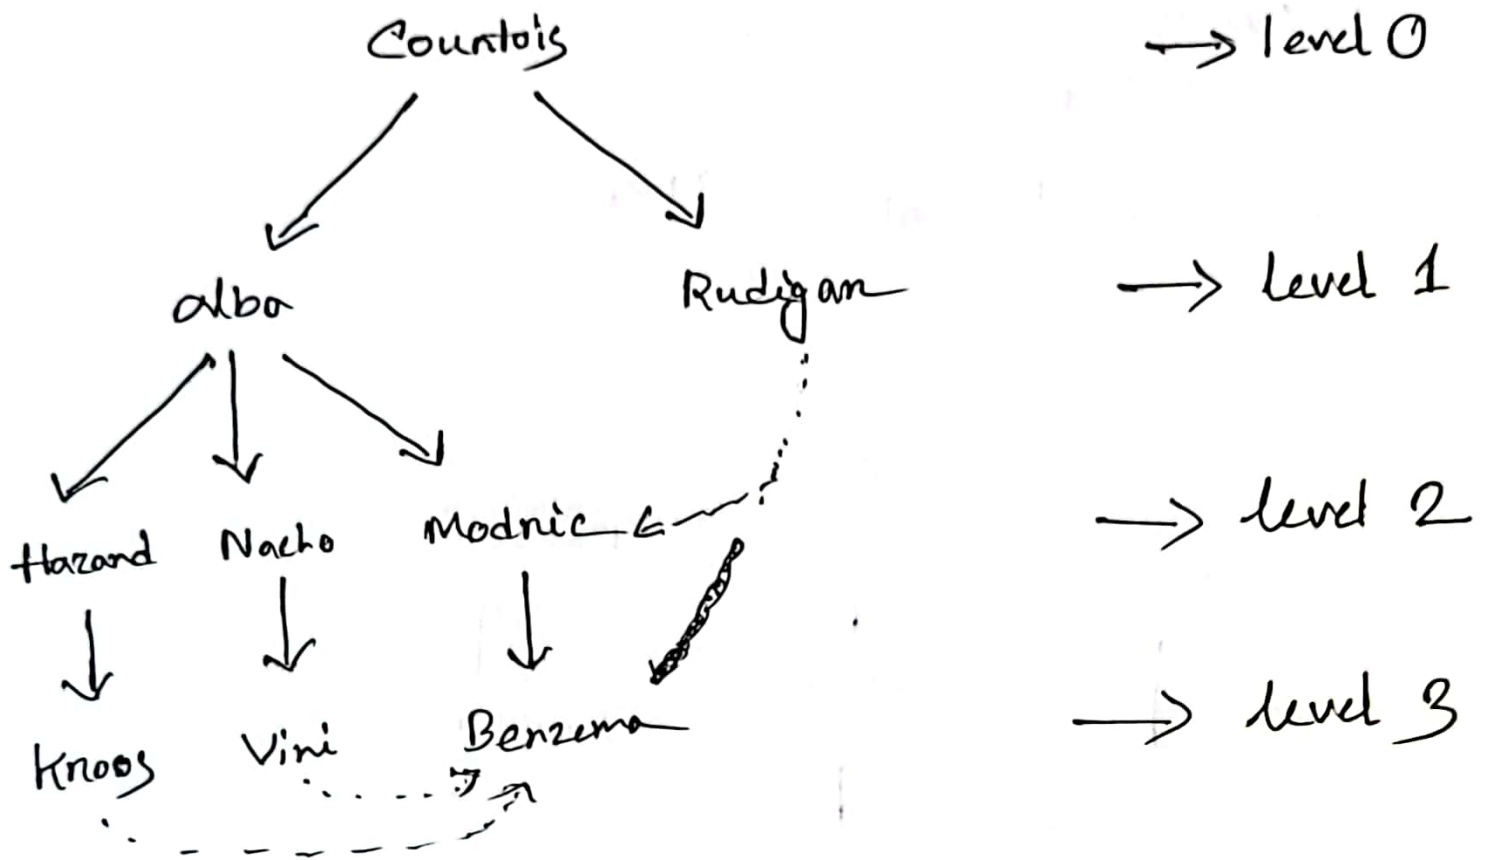 Countois → level 0
alba Rudigan → level 1
Hazand Nacho Modnic → level 2
Knoos Vini Benzema → level 3